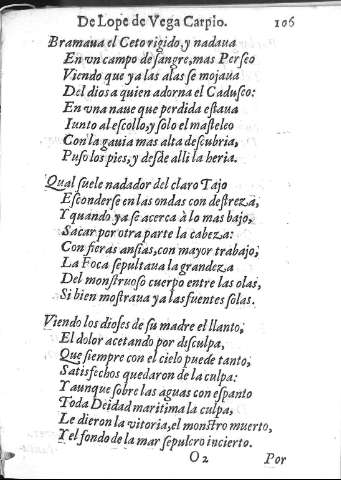 De Lope de Vega Carpio. 106
Bramaua el Ceto rigido, y nadaua
En vn campo de sangre, mas Perseo
Viendo que ya las alas se mojaua
Del dios a quien adorna el Caduseo:
En vna naue que perdida estaua
Iunto al escollo, y solo el masteleo
Con la gauia mas alta descubria,
Puso los pies, y desde alli la heria.
Qual suele nadador del claro Tajo
Esconderse en las ondas con destreza,
Y quando ya se acerca à lo mas bajo,
Sacar por otra parte la cabeza:
Con fieras ansias, con mayor trabajo,
La Foca sepultaua la grandeza
Del monstruoso cuerpo entre las olas,
Si bien mostraua ya las fuentes solas.
Viendo los dioses de su madre el llanto,
El dolor acetando por disculpa,
Que siempre con el cielo puede tanto,
Satisfechos quedaron de la culpa:
Y aunque sobre las aguas con espanto
Toda Deidad maritima la culpa,
Le dieron la vitoria, el monstro muerto,
Y el fondo de la mar sepulcro incierto.
O 2 Por